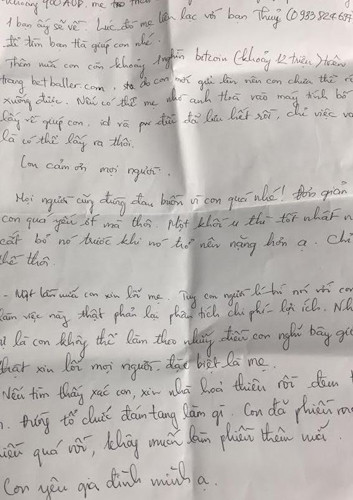 khoảng 400 AUD. mẹ trả theo
1 bạn ấy sẽ về. Lúc đó mẹ liên lạc với bạn Thủy
để tìm bạn trả giúp con nhé.
Thêm nữa con còn khoảng 1 nghìn betcoin (khoảng 12 triệu) trên
trang betballer.com, do con mới gửi lần nên con chưa thể r
xuống được. Nếu có thể mẹ nhờ anh thả vào máy tính bố
lấy về giúp con. id và pw đều đã lưu hết rồi, chỉ việc và
là có thể lấy ra thôi.
Con cảm ơn mọi người.
Mọi người cũng đừng đau buồn vì con quá nhé! Đơn giản
con quá yếu ớt mà thôi. Một khối u thì tốt nhất n
cắt bỏ nó trước khi nó trở nên nặng hơn ạ. Chỉ
thế thôi.
- Một lần nữa con xin lỗi mẹ. Tuy con người lí trí nói với con
làm việc này thật phải phân tích chi phí - lợi ích. Nh
là con không thể làm theo những điều con nghĩ bây giờ
thật xin lỗi mọi người đặc biệt là mẹ.
Nếu tìm thấy xác con, xin nhà hoả thiêu rồi đem t
đừng tổ chức đám tang làm gì. Con đã phiền mọ
nhiều quá rồi, không muốn làm phiền thêm nữa.
Con yêu gia đình mình ạ.